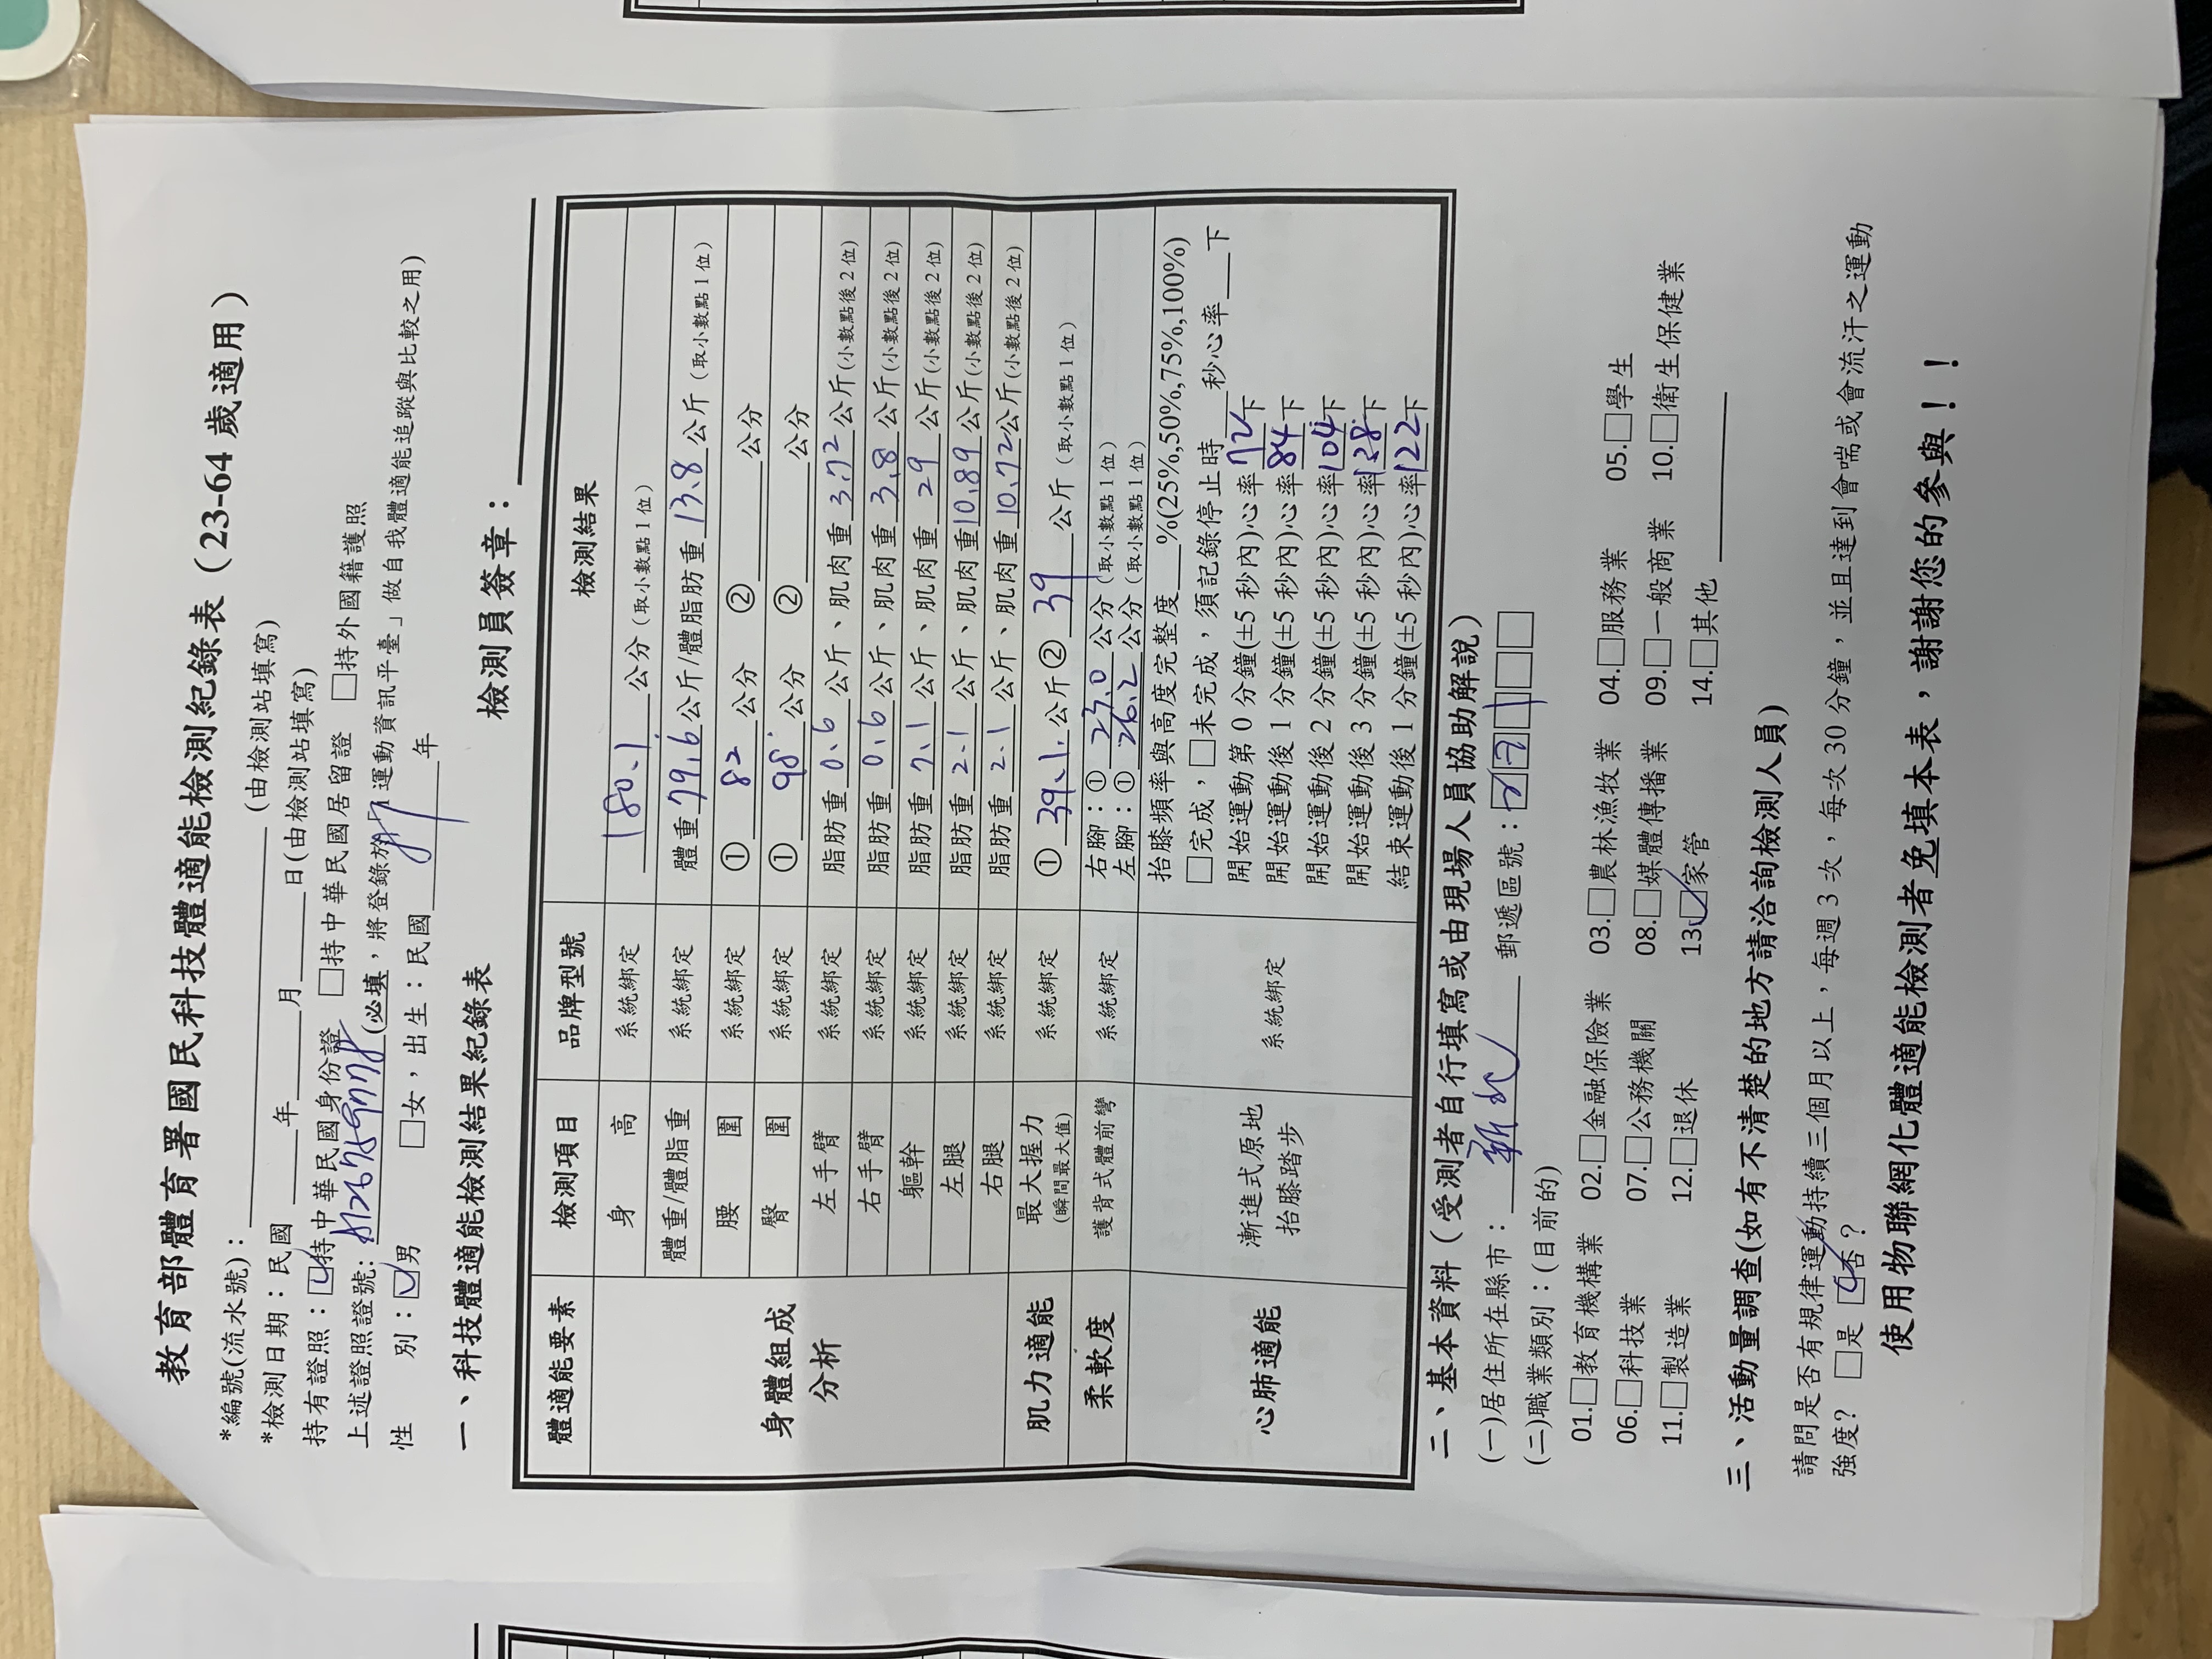 教育部體育署國民科技體適能檢測紀錄表（23-64 歲適用）
*編號(流水號)：＿＿＿ (由檢測站填寫)
*檢測日期：民國 ＿＿年＿＿月＿＿日(由檢測站填寫)
持有證照：☑持中華民國身份證 □持中華民國居留證 □持外國籍護照
上述證照證號: A126759778(必填，將登錄於「i運動資訊平臺」做自我體適能追蹤與比較之用)
性 別：☑男 □女，出生：民國 87 年
一、科技體適能檢測結果紀錄表 檢測員簽章：
體適能要素 檢測項目 品牌型號 檢測結果
身體組成分析
身 高 系統綁定 180.1 公分（取小數點 1 位）
體重/體脂重 系統綁定 體重 79.6 公斤/體脂肪重 13.8 公斤（取小數點 1 位）
腰 圍 系統綁定 ① 82 公分 ② ＿＿ 公分
臀 圍 系統綁定 ① 98 公分 ② ＿＿ 公分
左手臂 系統綁定 脂肪重 0.6 公斤、肌肉重 3.72 公斤(小數點後 2 位)
右手臂 系統綁定 脂肪重 0.6 公斤、肌肉重 3.8 公斤(小數點後 2 位)
軀幹 系統綁定 脂肪重 7.1 公斤、肌肉重 29 公斤(小數點後 2 位)
左腿 系統綁定 脂肪重 2.1 公斤、肌肉重 10.89 公斤(小數點後 2 位)
右腿 系統綁定 脂肪重 2.1 公斤、肌肉重 10.72 公斤(小數點後 2 位)
肌力適能 最大握力 系統綁定 ① 39.1 公斤 ② 39 公斤（取小數點 1 位）
(瞬間最大值)
柔軟度 護背式體前彎 系統綁定 右腳：① 23.0 公分（取小數點 1 位）
左腳：① 26.2 公分（取小數點 1 位）
心肺適能 漸進式原地抬膝踏步 系統綁定
抬膝頻率與高度完整度＿＿%(25%,50%,75%,100%)
□完成，□未完成，須記錄停止時＿＿秒心率＿＿下
開始運動第 0 分鐘(±5 秒內)心率 72 下
開始運動後 1 分鐘(±5 秒內)心率 84 下
開始運動後 2 分鐘(±5 秒內)心率 104 下
開始運動後 3 分鐘(±5 秒內)心率 138 下
結束運動後 1 分鐘(±5 秒內)心率 122 下
二、基本資料（受測者自行填寫或由現場人員協助解說）
(一)居住所在縣市： 新北 郵遞區號：
(二)職業類別：(目前的)
01.□教育機構業 02.□金融保險業 03.□農林漁牧業 04.□服務業 05.□學生
06.□科技業 07.□公務機關 08.□媒體傳播業 09.□一般商業 10.□衛生保健業
11.□製造業 12.□退休 13.☑家管 14.□其他
三、活動量調查(如有不清楚的地方請洽詢檢測人員)
請問是否有規律運動持續三個月以上，每週 3 次，每次 30 分鐘，並且達到會喘或會流汗之運動
強度? □是 ☑否？
使用物聯網化體適能檢測者免填本表，謝謝您的參與！！